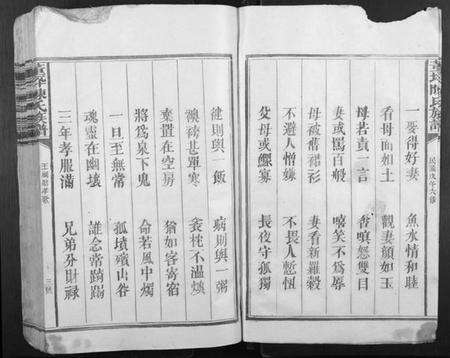 一娶得好妻　魚水情和睦
看母面如土　觀妻顏如玉
母若責一言　含嗔怒雙目
妻或罵百般　嘻笑不爲辱
母被舊裙衫　妻着新羅縠
不避人憎嫌　不畏人慙恧
父母或鰥寡　長夜守孤獨
陳氏族譜
民國戊午六修
健則與一飯　病則與一粥
甚單寒　衾枕不溫燠
棄置在空房　猶如客寄宿
將爲泉下鬼　命若風中燭
一旦至無常　孤墳殯山谷
魂靈在幽壤　誰念常踡跼
三年孝服滿　兄弟分財祿
陳氏族譜
王剛勸孝歌